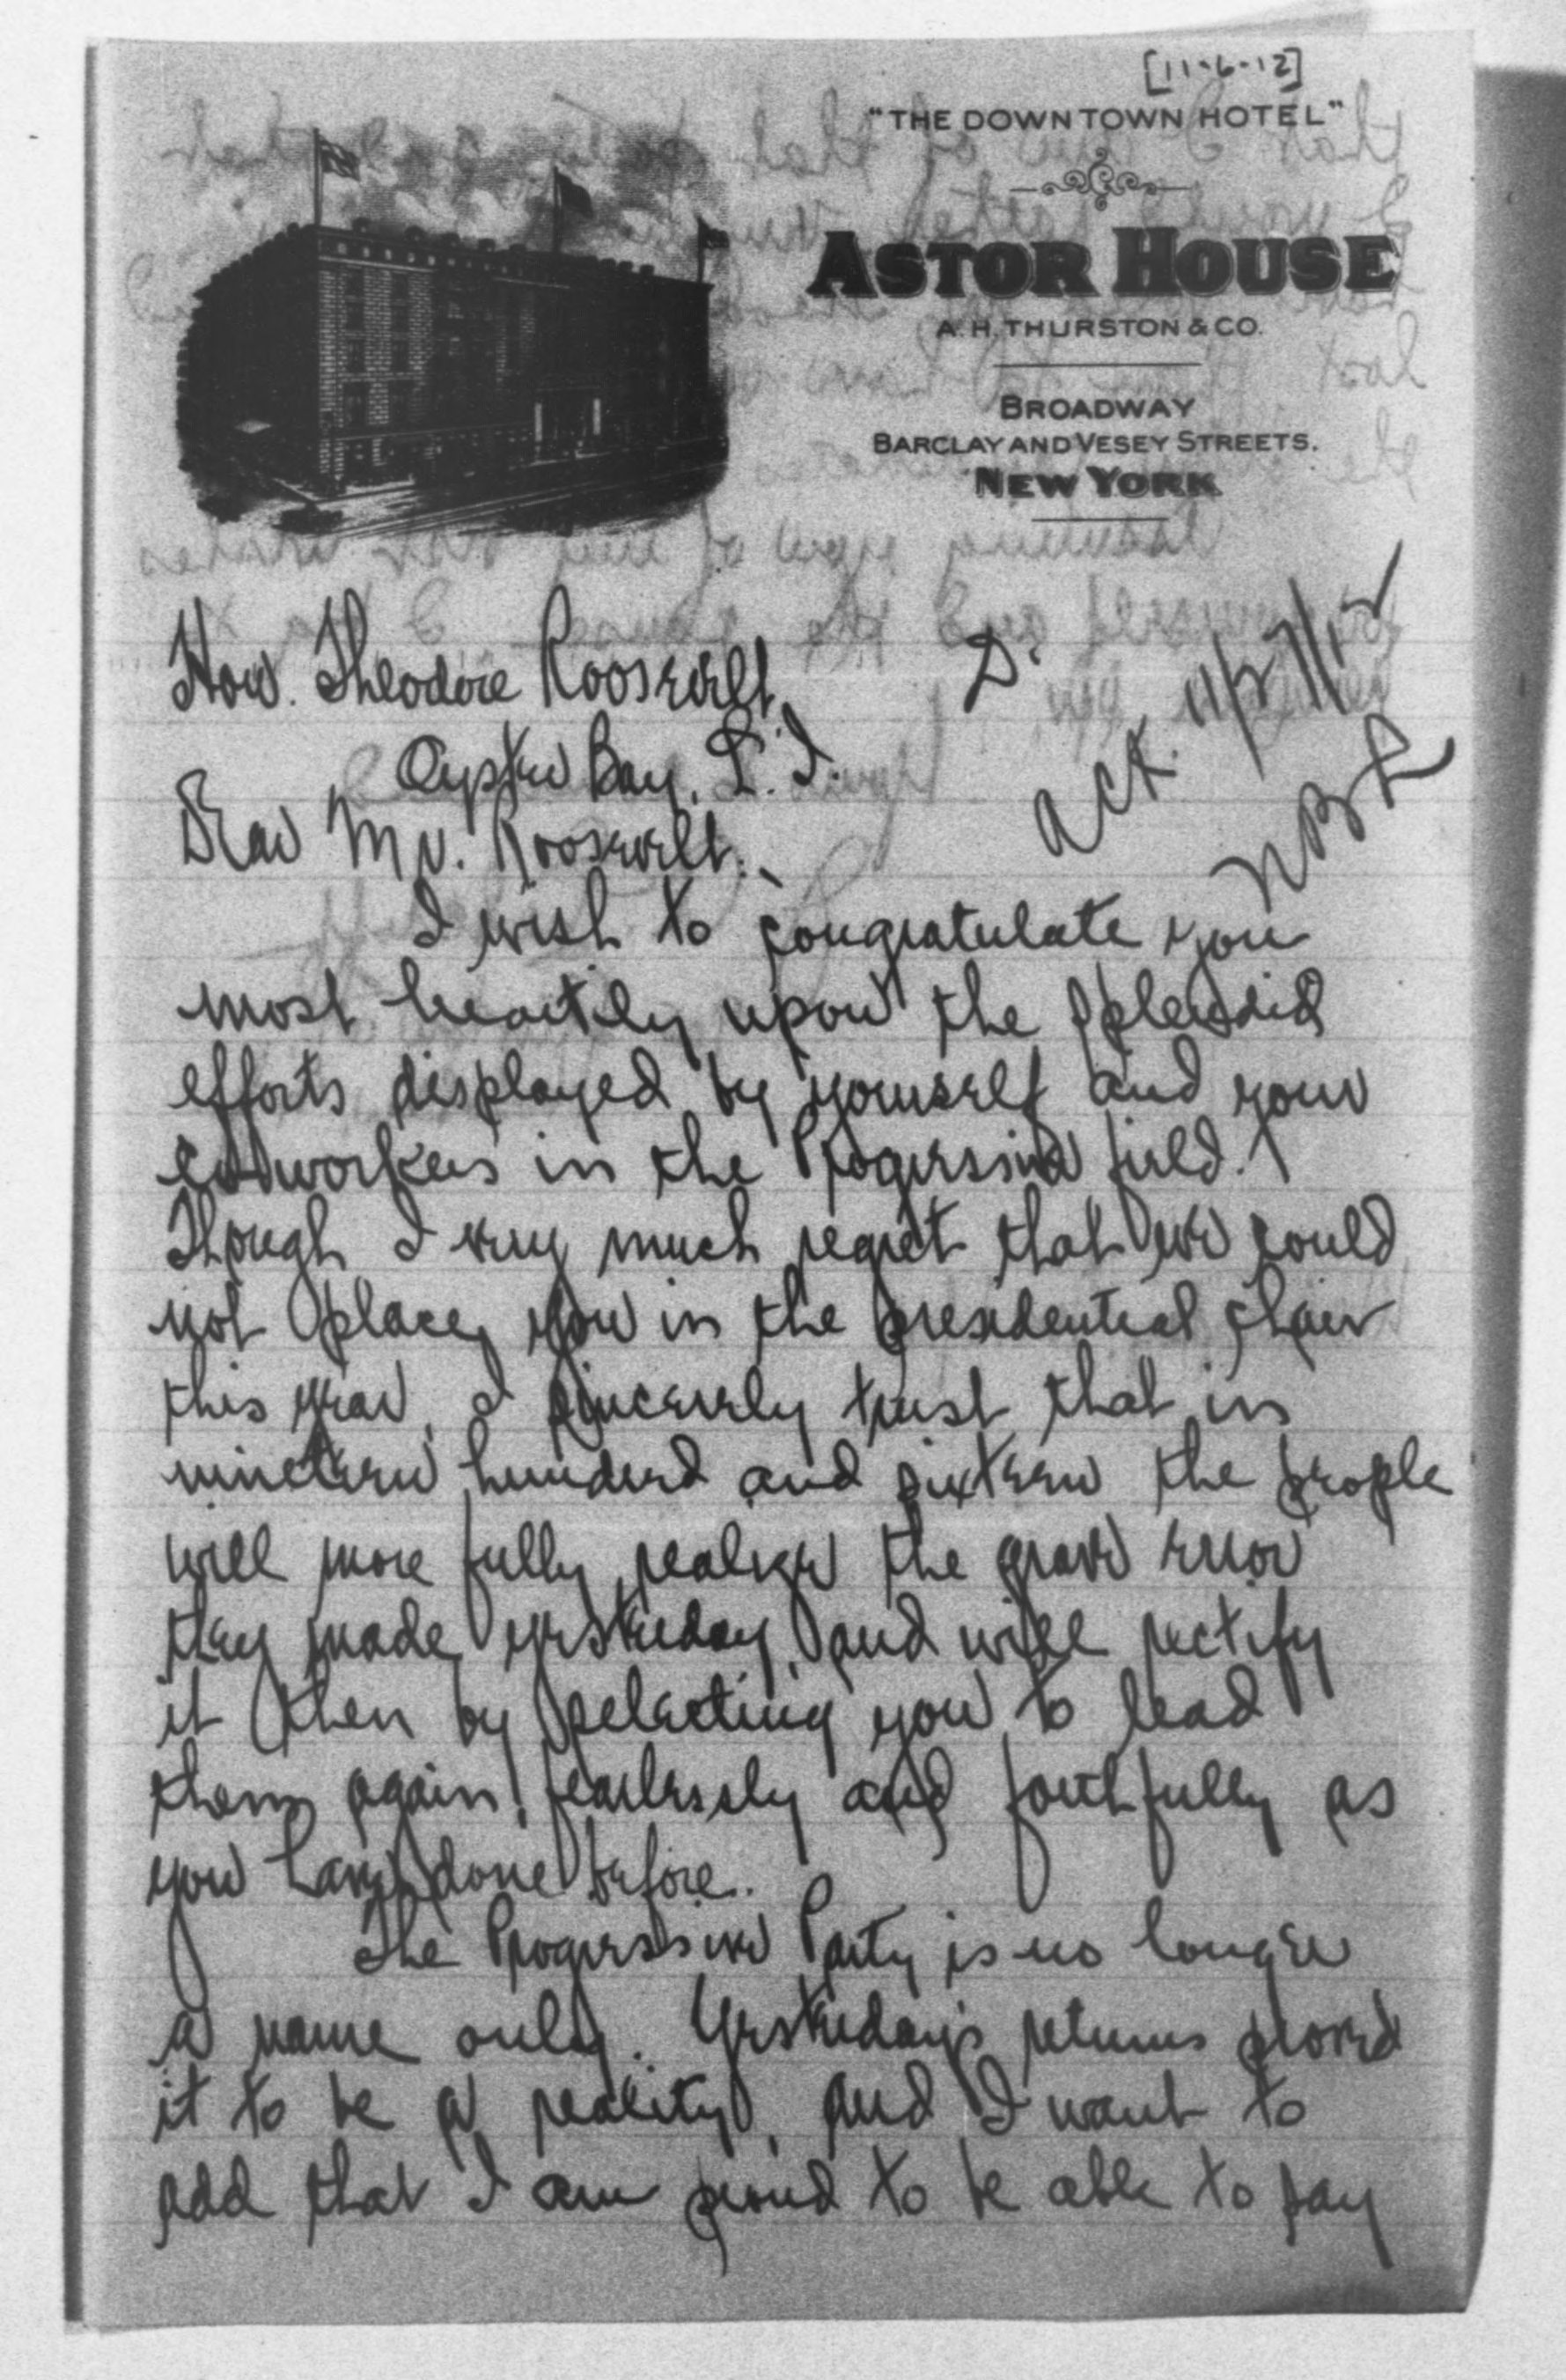 [11-6-12]
"THE DOWN TOWN HOTEL"
ASTOR HOUSE
A. H. THURSTON & CO.
BROADWAY
BARCLAY AND VESEY STREETS.
NEW YORK
Hon. Theodore Roosevelt,
Oyster Bay, L. I.
D.
ack. 11/27/12
Dear Mr. Roosevelt:
I wish to congratulate you
most heartily upon the splendid
efforts displayed by yourself and your
co-workers in the Progressive field.
Though I very much regret that we could
not place you in the presidential chair
this year, I sincerely trust that in
nineteen hundred and sixteen the people
will more fully realize the grave error
they made yesterday, and will rectify
it then by selecting you to lead
them again, fearlessly and faithfully as
you have done before.
The Progressive Party is no longer
a name only. Yesterday's returns proved
it to be a reality, and I want to
add that I am proud to be able to say